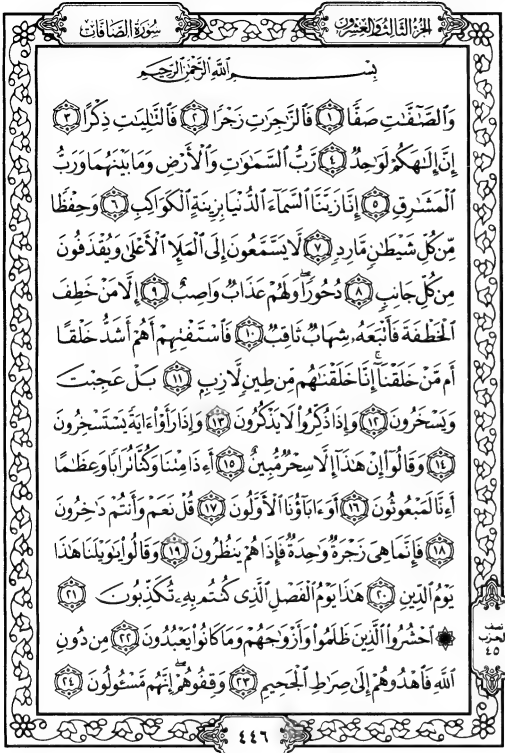 سُورَةُ الصَّافَّات
الجُزْءُ الثَّالِثُ وَالعِشْرُونَ
بِسْمِ اللَّهِ الرَّحْمَٰنِ الرَّحِيمِ
وَٱلصَّٰٓفَّٰتِ صَفًّا ١ فَٱلزَّٰجِرَٰتِ زَجْرًا ٢ فَٱلتَّٰلِيَٰتِ ذِكْرًا ٣
إِنَّ إِلَٰهَكُمْ لَوَٰحِدٌ ٤ رَّبُّ ٱلسَّمَٰوَٰتِ وَٱلْأَرْضِ وَمَا بَيْنَهُمَا وَرَبُّ
ٱلْمَشَٰرِقِ ٥ إِنَّا زَيَّنَّا ٱلسَّمَآءَ ٱلدُّنْيَا بِزِينَةٍ ٱلْكَوَاكِبِ ٦ وَحِفْظًا
مِّن كُلِّ شَيْطَٰنٍ مَّارِدٍ ٧ لَّا يَسَّمَّعُونَ إِلَى ٱلْمَلَإِ ٱلْأَعْلَىٰ وَيُقْذَفُونَ
مِن كُلِّ جَانِبٍ ٨ دُحُورًا ۖ وَلَهُمْ عَذَابٌ وَاصِبٌ ٩ إِلَّا مَنْ خَطِفَ
ٱلْخَطْفَةَ فَأَتْبَعَهُۥ شِهَابٌ ثَاقِبٌ ١٠ فَٱسْتَفْتِهِمْ أَهُمْ أَشَدُّ خَلْقًا
أَم مَّنْ خَلَقْنَآ ۚ إِنَّا خَلَقْنَٰهُم مِّن طِينٍ لَّازِبٍ ١١ بَلْ عَجِبْتَ
وَيَسْخَرُونَ ١٢ وَإِذَا ذُكِّرُوا۟ لَا يَذْكُرُونَ ١٣ وَإِذَا رَأَوْا۟ ءَايَةً يَسْتَسْخِرُونَ
١٤ وَقَالُوٓا۟ إِنْ هَٰذَآ إِلَّا سِحْرٌ مُّبِينٌ ١٥ أَءِذَا مِتْنَا وَكُنَّا تُرَابًا وَعِظَٰمًا
أَءِنَّا لَمَبْعُوثُونَ ١٦ أَوَءَابَآؤُنَا ٱلْأَوَّلُونَ ١٧ قُلْ نَعَمْ وَأَنتُمْ دَٰخِرُونَ
١٨ فَإِنَّمَا هِىَ زَجْرَةٌ وَٰحِدَةٌ فَإِذَا هُمْ يَنظُرُونَ ١٩ وَقَالُوا۟ يَٰوَيْلَنَا هَٰذَا
يَوْمُ ٱلدِّينِ ٢٠ هَٰذَا يَوْمُ ٱلْفَصْلِ ٱلَّذِى كُنتُم بِهِۦ تُكَذِّبُونَ ٢١
۞ ٱحْشُرُوا۟ ٱلَّذِينَ ظَلَمُوا۟ وَأَزْوَٰجَهُمْ وَمَا كَانُوا۟ يَعْبُدُونَ ٢٢ مِن دُونِ
ٱللَّهِ فَٱهْدُوهُمْ إِلَىٰ صِرَٰطِ ٱلْجَحِيمِ ٢٣ وَقِفُوهُمْ ۖ إِنَّهُم مَّسْـُٔولُونَ ٢٤
نصف
الحزب
٤٥
٤٤٦